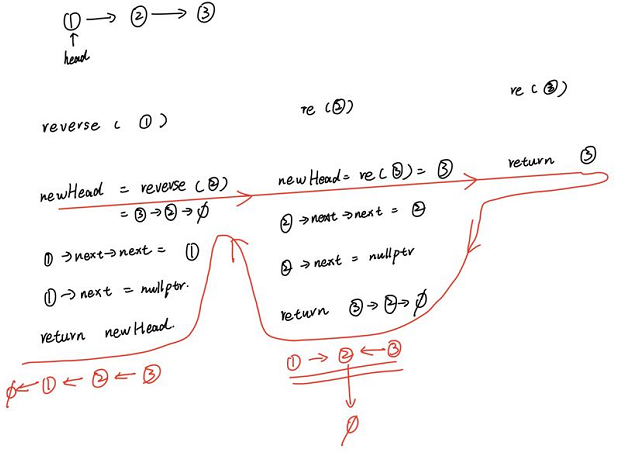 ① → ② → ③
↑
head
reverse ( ① )
newHead = reverse (②)
= ③→②→∅
①→next→next = ①
①→next = nullptr.
return newHead.
∅←①←②←③
re (②)
newHead = re(③) = ③
②→next→next = ②
②→next = nullptr
return ③→②→∅
①→②←③
↓
∅
re (③)
return ③